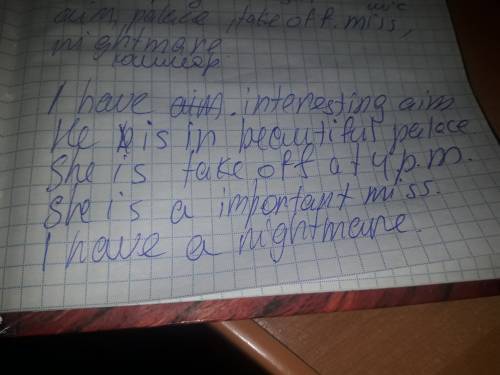 aim, palace take off. miss,
nightmare
кошмар.
I have aim. interesting aim
He is in beautiful palace
She is take off at 4 p.m.
She is a important miss.
I have a nightmare.